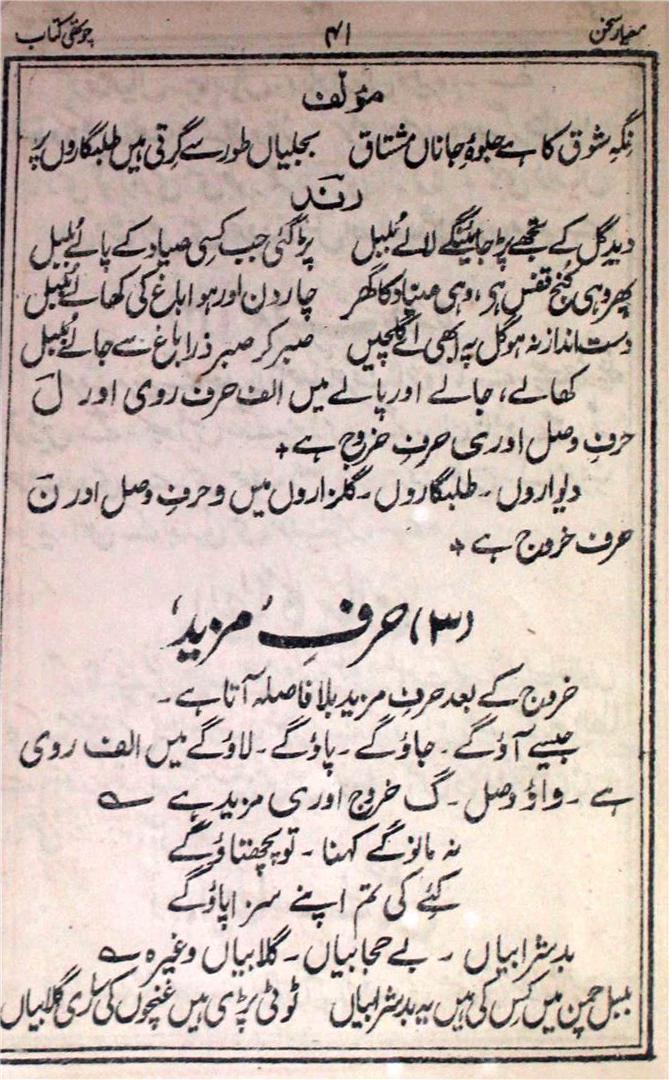 معیار سخن ۴۱ چوتھی کتاب
مؤلف
نگہِ شوق کا ہے جلوۂ جاناں مشتاق بجلیاں طور سے گرتی ہیں طلبگاروں پر
رند
دیدِ گل کے تجھے پڑ جائینگے لالے بُلبل پڑ گئی جب کسی صیاد کے پالے بُلبل
پھر وہی کُنج قفس ہو، وہی صیاد کا گھر چار دن اور ہوا باغ کی کھالے بُلبل
دست انداز نہ ہو گل پہ ابھی اے گلچیں صبر کر صبر ذرا باغ سے جالے بُلبل
کھالے، جالے اور پالے میں الف حرف روی اور لَ
حرفِ وصل اور ی حرفِ خروج ہے +
دیواروں ۔ طلبگاروں ۔ گلزاروں میں و حرفِ وصل اور نَ
حرف خروج ہے +
(۳) حرفِ مزید
خروج کے بعد حرفِ مزید بلا فاصلہ آتا ہے ۔
جیسے آؤگے ۔ جاؤگے ۔ پاؤگے ۔ لاؤگے میں الف روی
ہے ۔ واؤ وصل ۔ گ خروج اور ی مزید ہے ؎
نہ مانوگے کہنا ۔ تو پچھتاؤگے
کئے کی تم اپنے سزا پاؤگے
بدشرابیاں ۔ بے حجابیاں ۔ گلابیاں وغیرہ ؎
بلبل چمن میں کِس کی ہیں یہ بدشرابیاں ٹوٹی پڑی ہیں غنچوں کی ساری گلابیاں